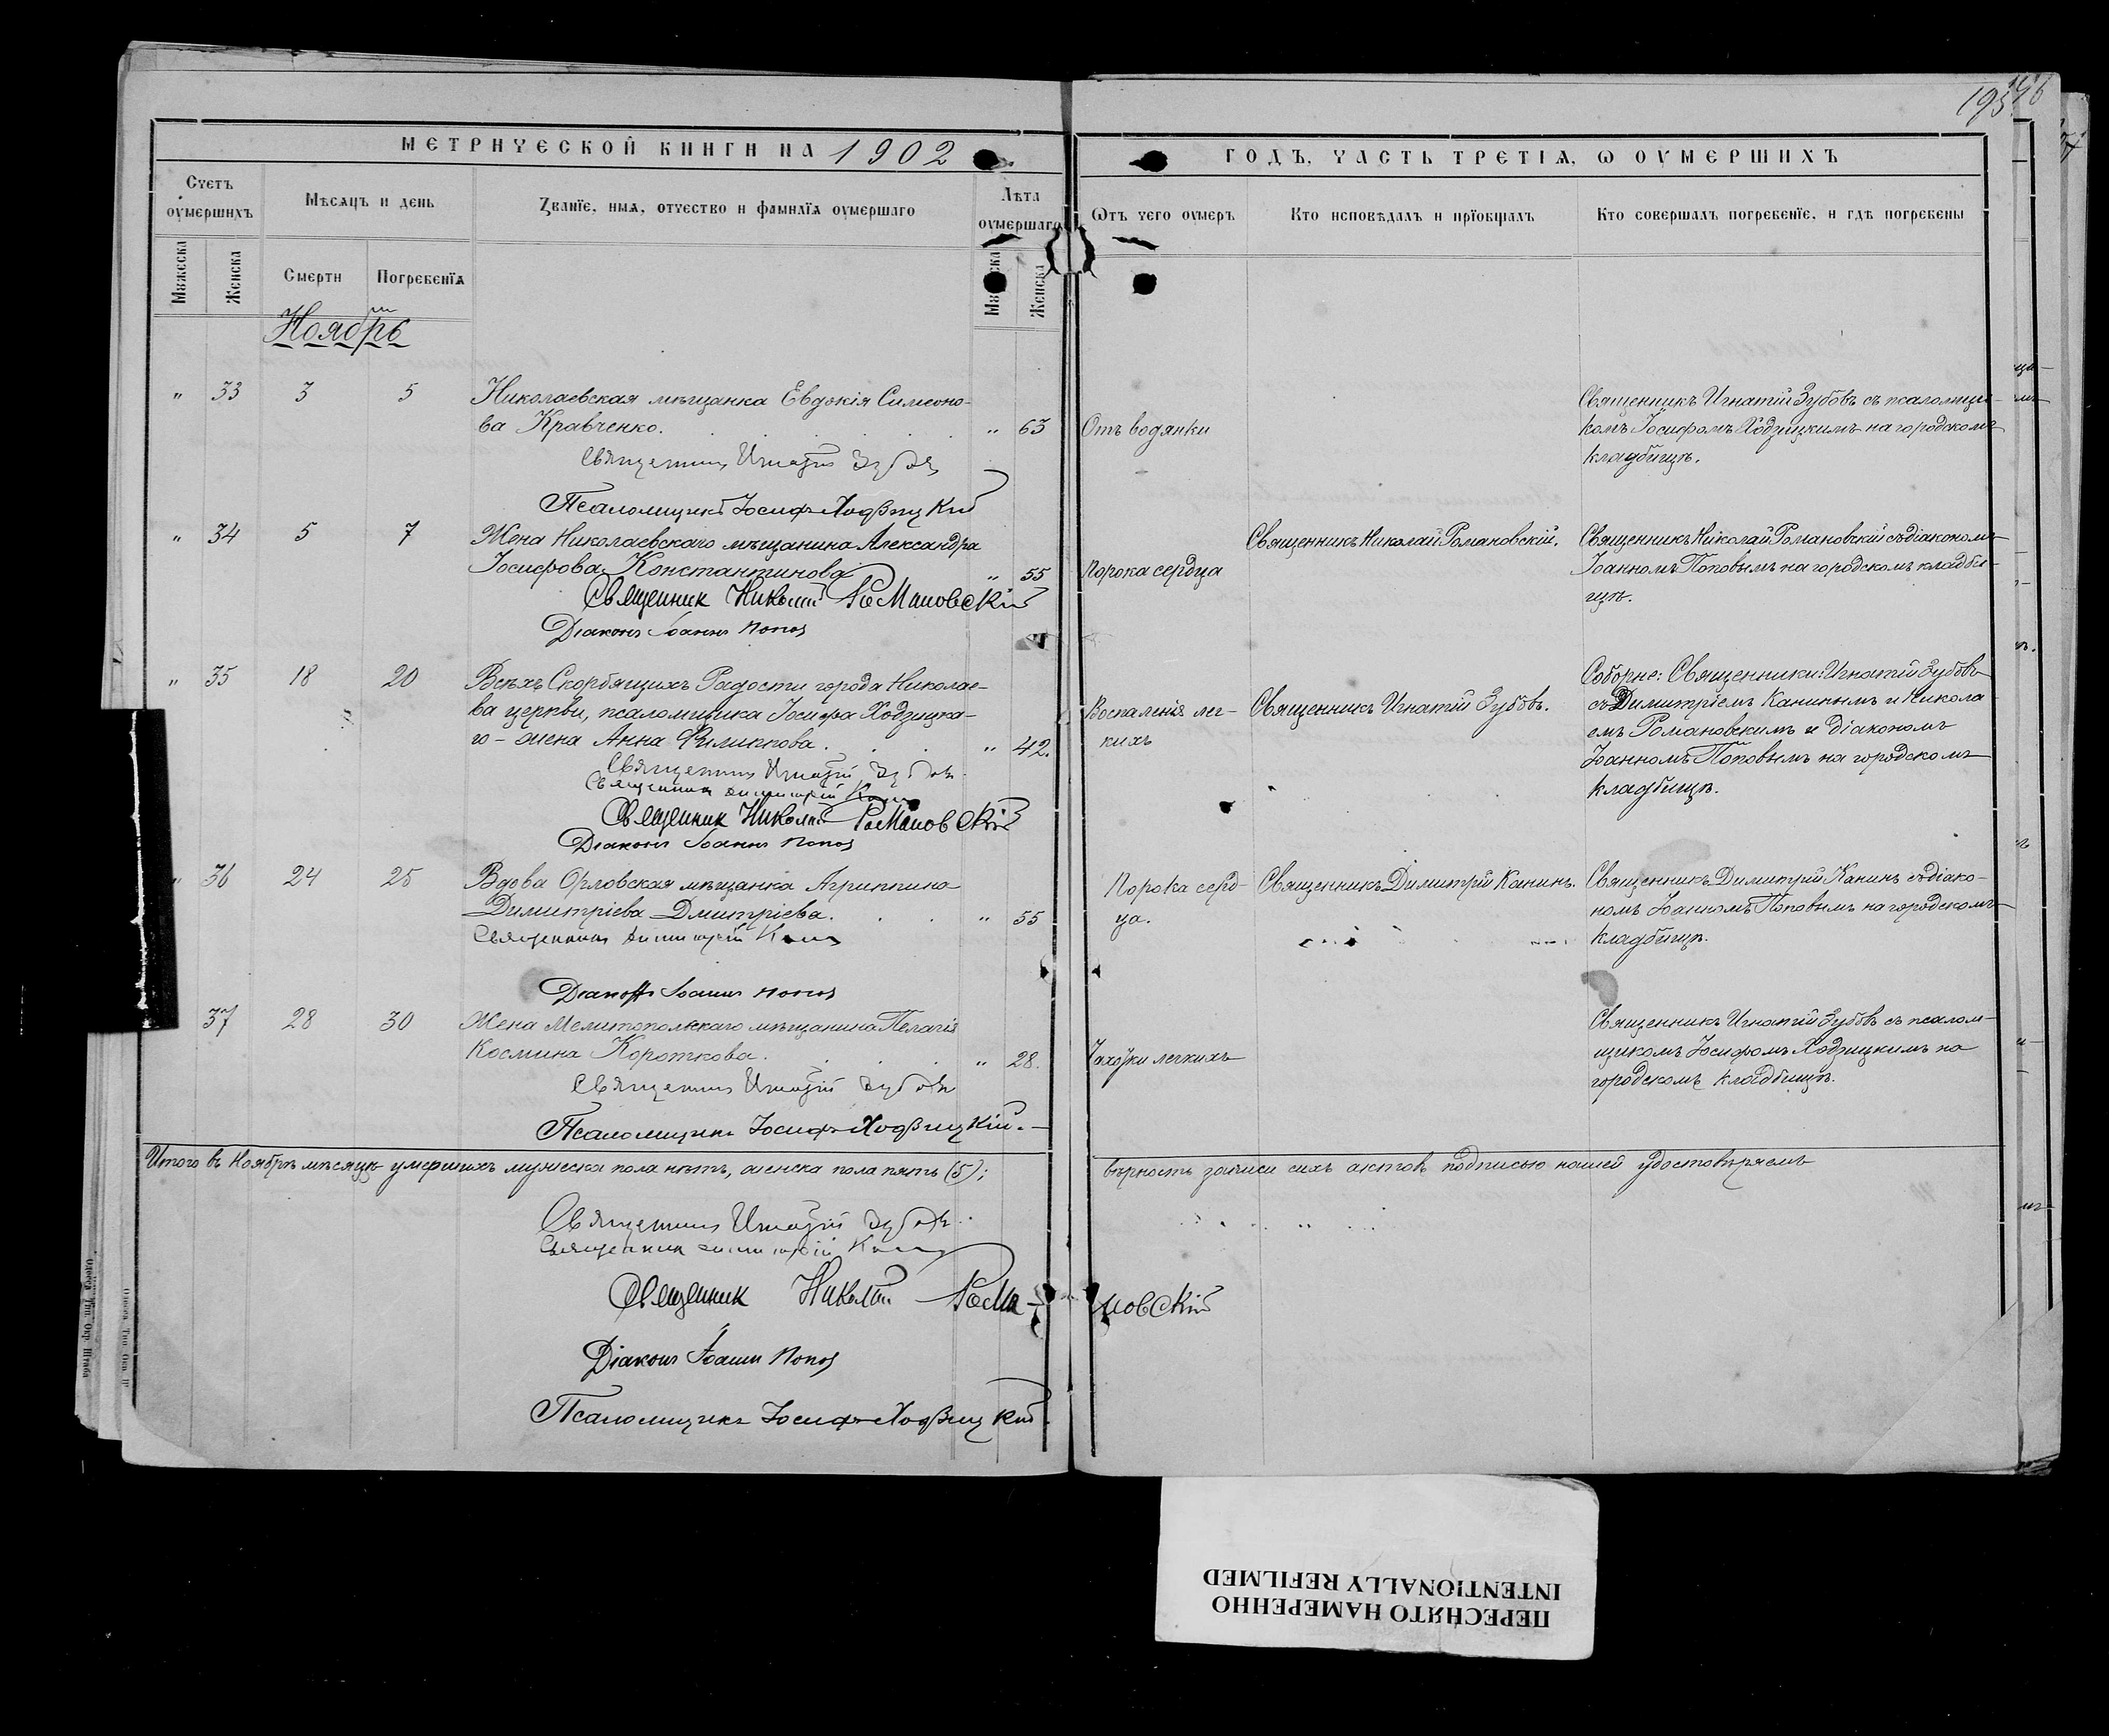 195
МЕТРИЧЕСКОЙ КНИГИ НА 1902
ГОДЪ, ЧАСТЬ ТРЕТІѦ, Ѡ ОУМЕРШИХЪ
Счетъ оумершихъ
Мѣсяцъ и день
Званїе, имя, отчество и фамилїя оумершаго
Лѣта оумершаго
Ѿтъ чего оумеръ
Кто исповѣдалъ и прїобщалъ
Кто совершалъ погребенїе, и гдѣ погребены
Мꙋжеска
Женска
Смерти
Погребенїя
Женска
Ноябрь
" 33 3 5 Николаевская мѣщанка Евдокія Симеоно-
ва Кравченко. " 63
Отъ водянки
Священникъ Игнатій Зубовъ съ псаломщи-
комъ Іосифомъ Ходзицкимъ на городскомъ
кладбищѣ.
Священникъ Игнатій Зубовъ
Псаломщикъ Іосифъ Ходзицкій
" 34 5 7 Жена Николаевскаго мѣщанина Александра
Іосифова Константинова " 55
Порока сердца
Священникъ Николай Романовскій.
Священникъ Николай Романовскій съ діакономъ
Іоанномъ Поповымъ на городскомъ кладби-
щѣ.
Священник Николай Романовскій
Діаконъ Іоаннъ Попов
" 35 18 20 Всѣхъ Скорбящихъ Радости города Николае-
ва церкви, псаломщика Іосифа Ходзицка-
го - жена Анна Филиппова. " 42.
Воспаленія лег-
кихъ
Священникъ Игнатій Зубовъ.
Соборне: Священники: Игнатій Зубовъ
съ Димитріемъ Канинымъ и Никола
емъ Романовскимъ и діакономъ
Іоанномъ Поповымъ на городскомъ
кладбищѣ.
Священникъ Игнатій Зубовъ
Священник Димитрій Канин
Священник Николай Романовскій
Діаконъ Іоаннъ Попов
" 36 24 25 Вдова Орловская мѣщанка Агриппина
Димитріева Дмитріева. " 55
Порока серд-
ца.
Священникъ Димитрій Канинъ.
Священникъ Димитрій Канинъ съ діако-
номъ Іоанномъ Поповымъ на городскомъ
кладбищѣ.
Священникъ Димитрій Канин
Діаконъ Іоаннъ Попов
37 28 30 Жена Мелитопольскаго мѣщанина Пелагія
Космина Короткова. " 28.
Чахотки легкихъ
Священникъ Игнатій Зубовъ съ псалом-
щикомъ Іосифомъ Ходзицкимъ на
городскомъ кладбищѣ.
Священникъ Игнатій Зубовъ
Псаломщикъ Іосифъ Ходзицкій.
Итого въ Ноябрѣ мѣсяцѣ умершихъ мужеска пола нѣтъ, женска пола пять (5);
вѣрность записи сихъ актовъ подписью нашей удостовѣряемъ
Священникъ Игнатій Зубовъ.
Священник Димитрій Канин
Священник Николай Рома-
новскій
Діаконъ Іоаннъ Попов
Псаломщикъ Іосифъ Ходзицкій.
ПЕРЕСНЯТО НАМЕРЕННО
INTENTIONALLY REFILMED